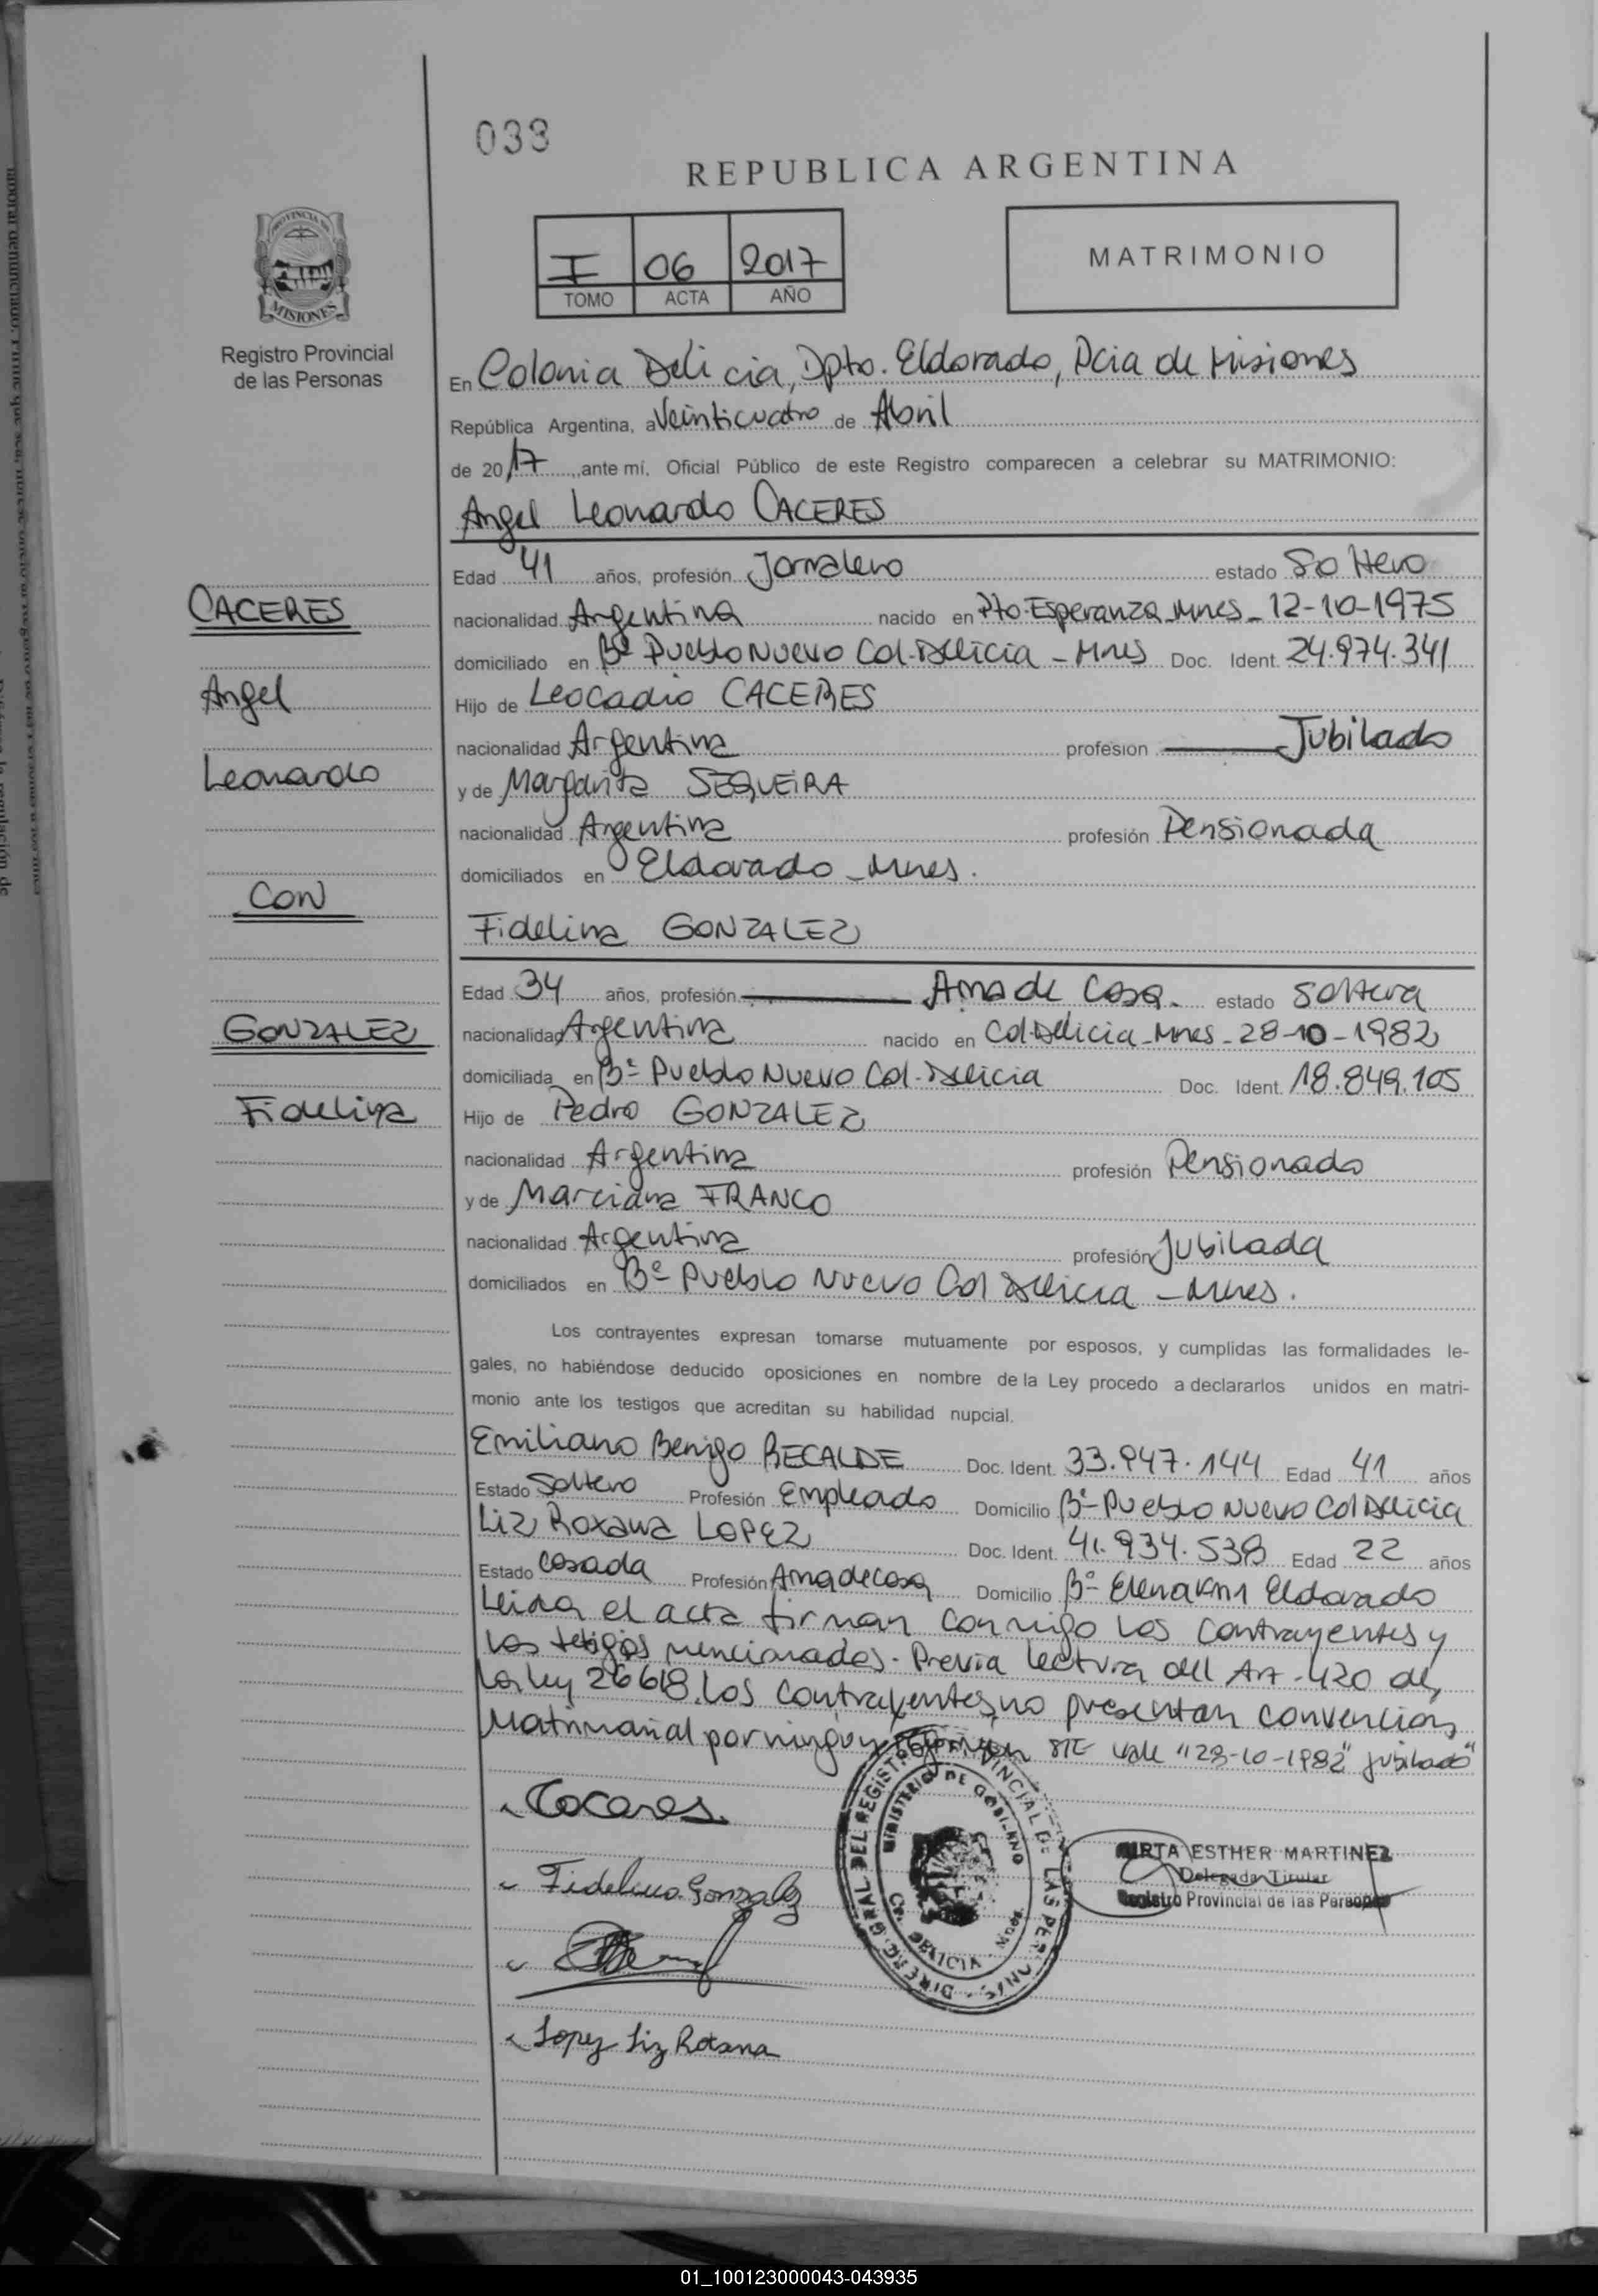 033
REPUBLICA ARGENTINA
I 06 2017
TOMO ACTA AÑO
MATRIMONIO
PROVINCIA DE
MISIONES
Registro Provincial
de las Personas
En Colonia Delicia, Dpto. Eldorado, Pcia de Misiones
República Argentina, a Veinticuatro de Abril
de 2017, ante mí, Oficial Público de este Registro comparecen a celebrar su MATRIMONIO:
Angel Leonardo CACERES
Edad 41 años, profesión Jornalero estado Soltero
CACERES
nacionalidad Argentina nacido en Pto. Esperanza Mnes - 12-10-1975
domiciliado en Bº Pueblo Nuevo Col. Delicia - Mnes Doc. Ident. 24.974.341
Angel
Hijo de Leocadio CACERES
nacionalidad Argentina profesion Jubilado
Leonardo
y de Margarita SEQUEIRA
nacionalidad Argentina profesión Pensionada
domiciliados en Eldorado - Mnes.
CON
Fidelina GONZALEZ
Edad 34 años, profesión Ama de Casa. estado Soltera
GONZALEZ
nacionalidad Argentina nacido en Col Delicia - Mnes - 28-10-1982
domiciliada en Bº Pueblo Nuevo Col. Delicia Doc. Ident. 18.849.105
Fidelina
Hijo de Pedro GONZALEZ
nacionalidad Argentina profesión Pensionado
y de Marciana FRANCO
nacionalidad Argentina profesión Jubilada
domiciliados en Bº Pueblo Nuevo Col Delicia - Mnes.
Los contrayentes expresan tomarse mutuamente por esposos, y cumplidas las formalidades le-
gales, no habiéndose deducido oposiciones en nombre de la Ley procedo a declararlos unidos en matri-
monio ante los testigos que acreditan su habilidad nupcial.
Emiliano Benigo RECALDE Doc. Ident. 33.947.144 Edad 41 años
Estado Soltero Profesión Empleado Domicilio Bº Pueblo Nuevo Col Delicia
Liz Roxana LOPEZ Doc. Ident. 41.934.538 Edad 22 años
Estado Casada Profesión Ama de casa Domicilio Bº Eldorado
Leida el acta firman conmigo los contrayentes y
los testigos mencionados. Previa lectura del Art. 420 de
la ley 26618. Los contrayentes no presentan convencion
Matrimonial por ningun STE Vale "28-10-1982" "jubilado"
Caceres
Fidelina Gonzalez
Lopez Liz Roxana
DIREC. GRAL. DEL REGISTRO PROVINCIAL DE LAS PERSONAS
MINISTERIO DE GOBIERNO
DELICIA
MIRTA ESTHER MARTINEZ
Delegada Titular
Registro Provincial de las Personas
01_100123000043-043935